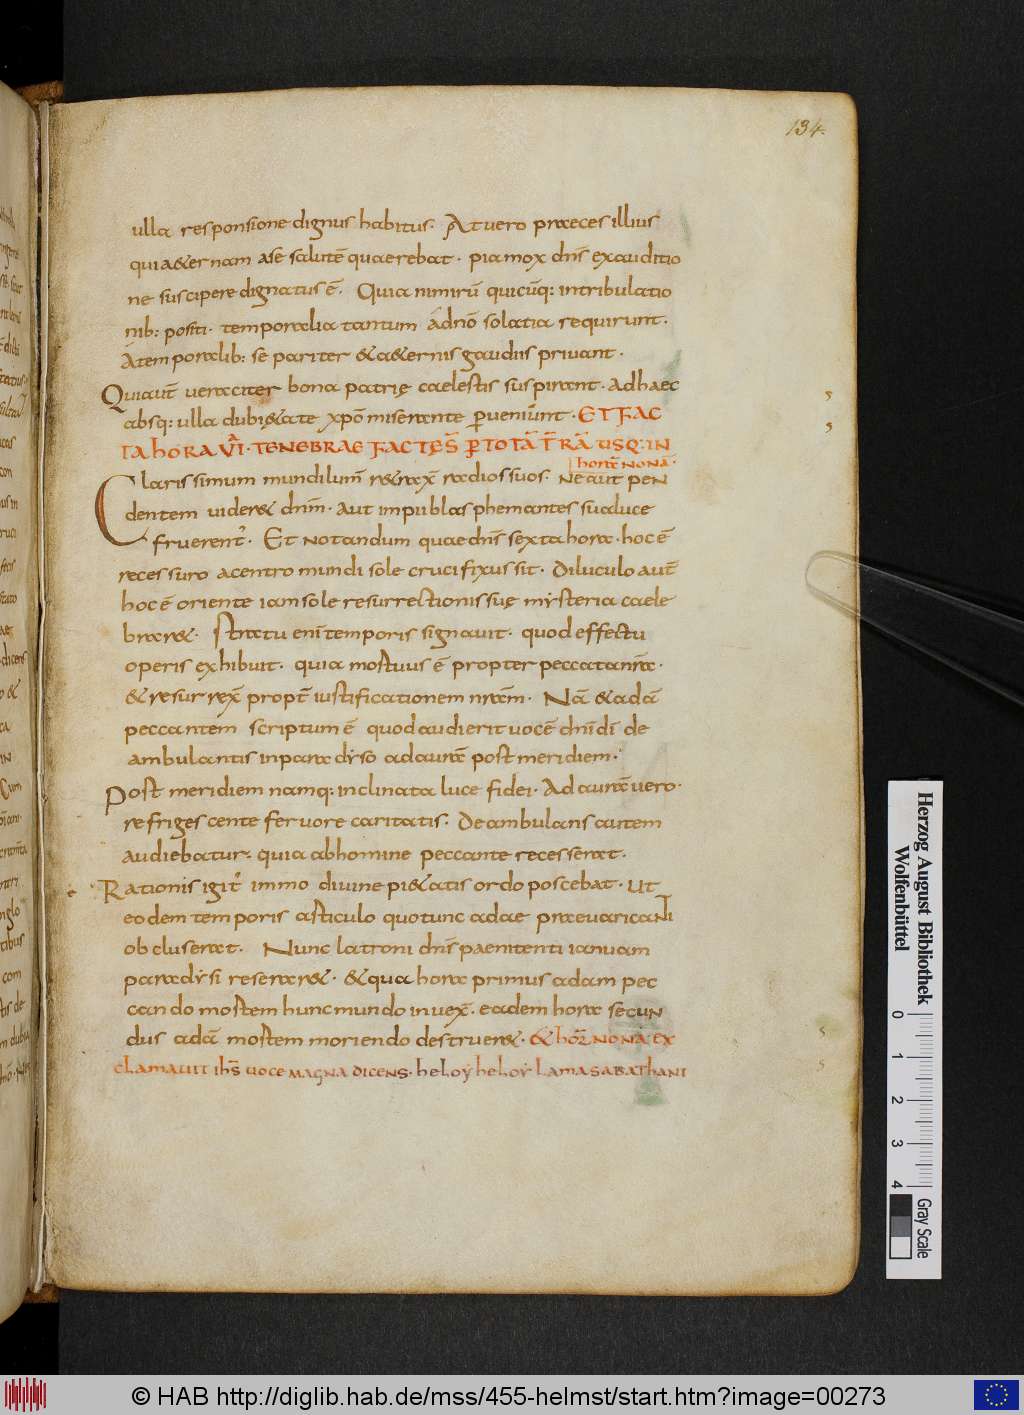 134.
ulla responsione dignus habitus. At uero praeces illius
qui a&ernam a se salutē quaerebat. pia mox dn̄s exauditio
ne suscipere dignatus ē. Quia nimirū quicūq: in tribulatio
nib: positi. temporalia tantum a dn̄o solatia requirunt.
A temporalib: se pariter & a&ernis gaudiis priuant.
Qui aut̄ ueraciter bona patrię caelestis suspirant. ad haec
absq: ulla dubi&ate xp̄o miserante ꝑueniunt. ET FAC
TA HORA VI. TENEBRAE FACTĘ S̄ ꝑ TOTĀ T̄RĀ USQ: IN
horā NONĀ.
Clarissimum mundi lum̄ r&rax̄ radios suos. Ne aut pen
dentem uider& dn̄m. aut impii blasphemantes sua luce
fruerent᷒. Et notandum quae dn̄s sexta hora. hoc ē
recessuro a centro mundi sole crucifixus sit. Diluculo aut̄
hoc ē oriente iam sole resurrectionis suę mysteria caele
brar&. Statu eni temporis signauit. quod effectu
operis exhibuit. quia mortuus ē propter peccata nr̄a.
& resurrex̄ propt̄ iustificationem nr̄am. Nā & adā
peccantem scriptum ē quod audierit uocē dn̄i dī de
ambulantis in paradyso ad aurā post meridiem.
Post meridiem namq: inclinata luce fidei. Ad aurā uero.
refrigescente feruore caritatis. Deambulans autem
audiebatur. quia ab homine peccante recesserat.
Rationis igit᷒ immo diuine pi&atis ordo poscebat. ut
eodem temporis articulo quo tunc adae praeuaricanti
obcluserat. Nunc latroni dn̄s paenitenti ianuam
paradysi reserar&. & qua hora primus adam pec
cando mortem hunc mundo inuex̄. eadem hora secun
dus adā mortem moriendo destruer&. & hōr NONA EX
CLAMAVIT IHS̄ UOCE MAGNA DICENS. heloy heloy. LAMASABATHANI
Herzog August Bibliothek
Wolfenbüttel
0 1 2 3 4
Gray Scale
© HAB http://diglib.hab.de/mss/455-helmst/start.htm?image=00273